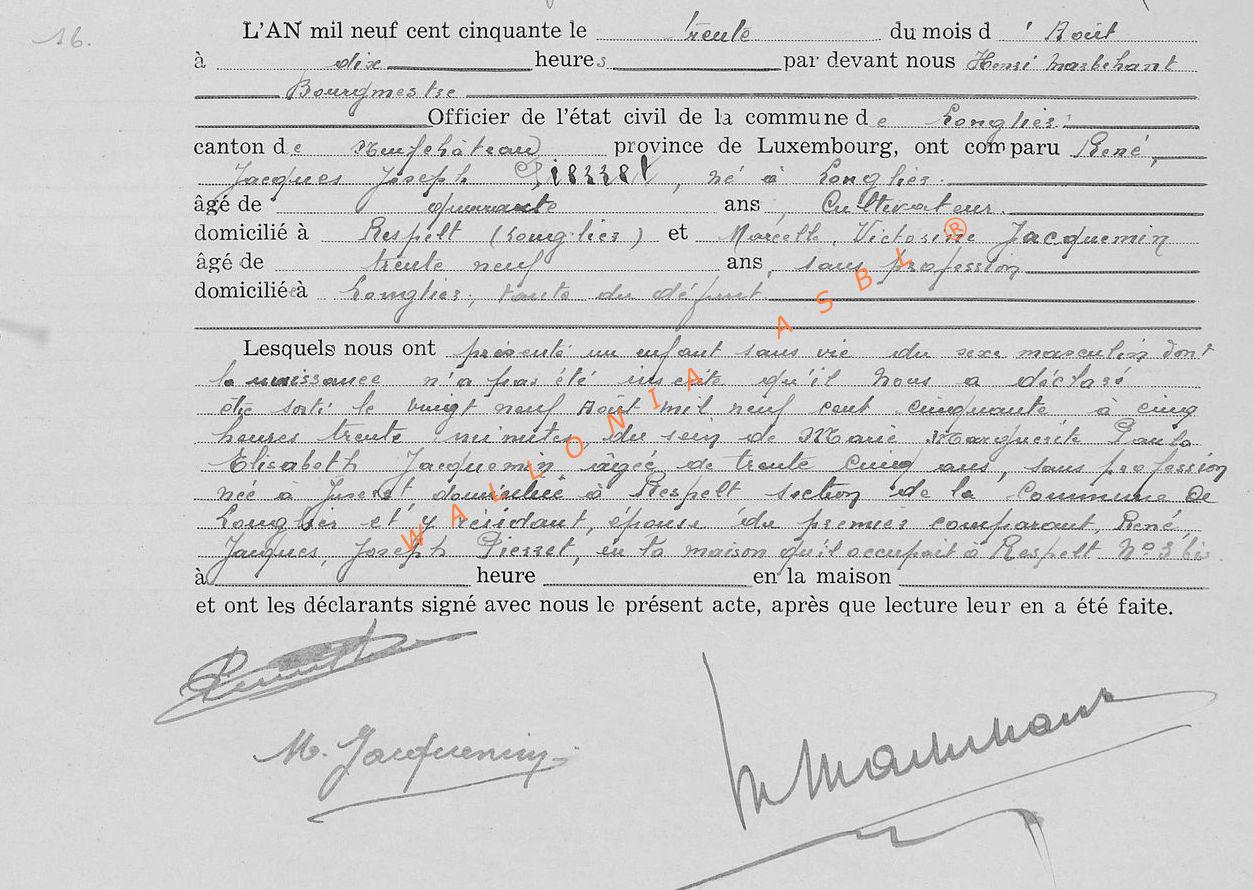 16.
L'AN mil neuf cent cinquante le trente du mois d ' Août
à dix heures par devant nous Henri
Bourgmestre
Officier de l'état civil de la commune de Longlier
canton de Neufchâteau province de Luxembourg, ont comparu René,
Jacques Joseph Pierret, né à Longlier.
âgé de quarante ans, Cultivateur.
domicilié à Respelt (Longlier) et Marcelle, Victorine Jacquemin
âgé de trente neuf ans, sans profession
domicilié à Longlier, tante du défunt.
Lesquels nous ont présenté un enfant sans vie du sexe masculin dont
la naissance n'a pas été inscrite qu'il nous a déclaré
être sorti le vingt neuf Août mil neuf cent cinquante à cinq
heures trente minutes, du sein de Marie Marguerite Paula
Elisabeth Jacquemin âgée de trente cinq ans, sans profession
née à Juseret domiciliée à Respelt section de la Commune de
Longlier et y résidant, épouse du premier comparant, René,
Jacques, Joseph Pierret, en la maison qu'il occupait à Respelt N° 3 bis
à heure en la maison
et ont les déclarants signé avec nous le présent acte, après que lecture leur en a été faite.
M. Jacquemin
WALLONIA ASBL ®